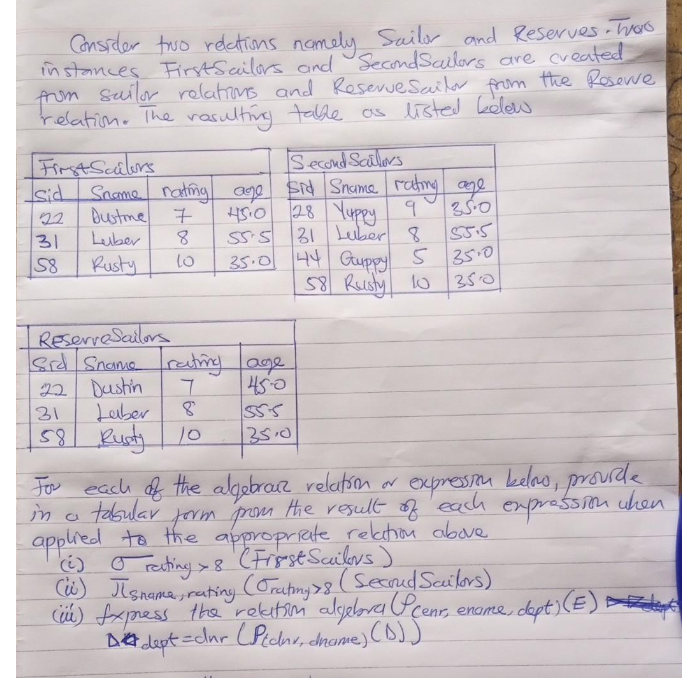 Consider two relations namely Sailor and Reserves. Two
instances FirstSailors and SecondSailors are created
from sailor relations and ReserveSailor from the Reserve
relation. The resulting table as listed below
FirstSailors
Sid Sname rating age
22 Dustme 7 45.0
31 Luber 8 55.5
58 Rusty 10 35.0
SecondSailors
Sid Sname rating age
28 Yuppy 9 35.0
31 Luber 8 55.5
44 Guppy 5 35.0
58 Rusty 10 35.0
ReserveSailors
Sid Sname rating age
22 Dustin 7 45.0
31 Luber 8 55.5
58 Rusty 10 35.0
For each of the algebraic relation or expression below, provide
in a tabular form from the result of each expression when
applied to the appropriate relation above
(i) σ rating > 8 (FirstSailors)
(ii) π sname, rating (σ rating > 8 (SecondSailors)
(iii) Express the relation algebra (ρ(enr, ename, dept) (E)
⋈ dept = dnr (ρ(dnr, dname) (D))